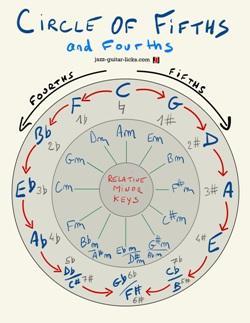 CIRCLE OF FIFTHS
and Fourths
jazz-guitar-licks.com
FOURTHS
FIFTHS
C
G
D
A
E
Cb
B
Gb
F#
Db
C#
Ab
Eb
Bb
F
♮
1#
2#
3#
4#
7b
5#
6b
6#
5b
7#
4b
3b
2b
1b
Am
Em
Bm
F#m
C#m
G#m
Abm
Ebm
D#m
Bbm
A#m
Fm
Cm
Gm
Dm
RELATIVE
MINOR
KEYS